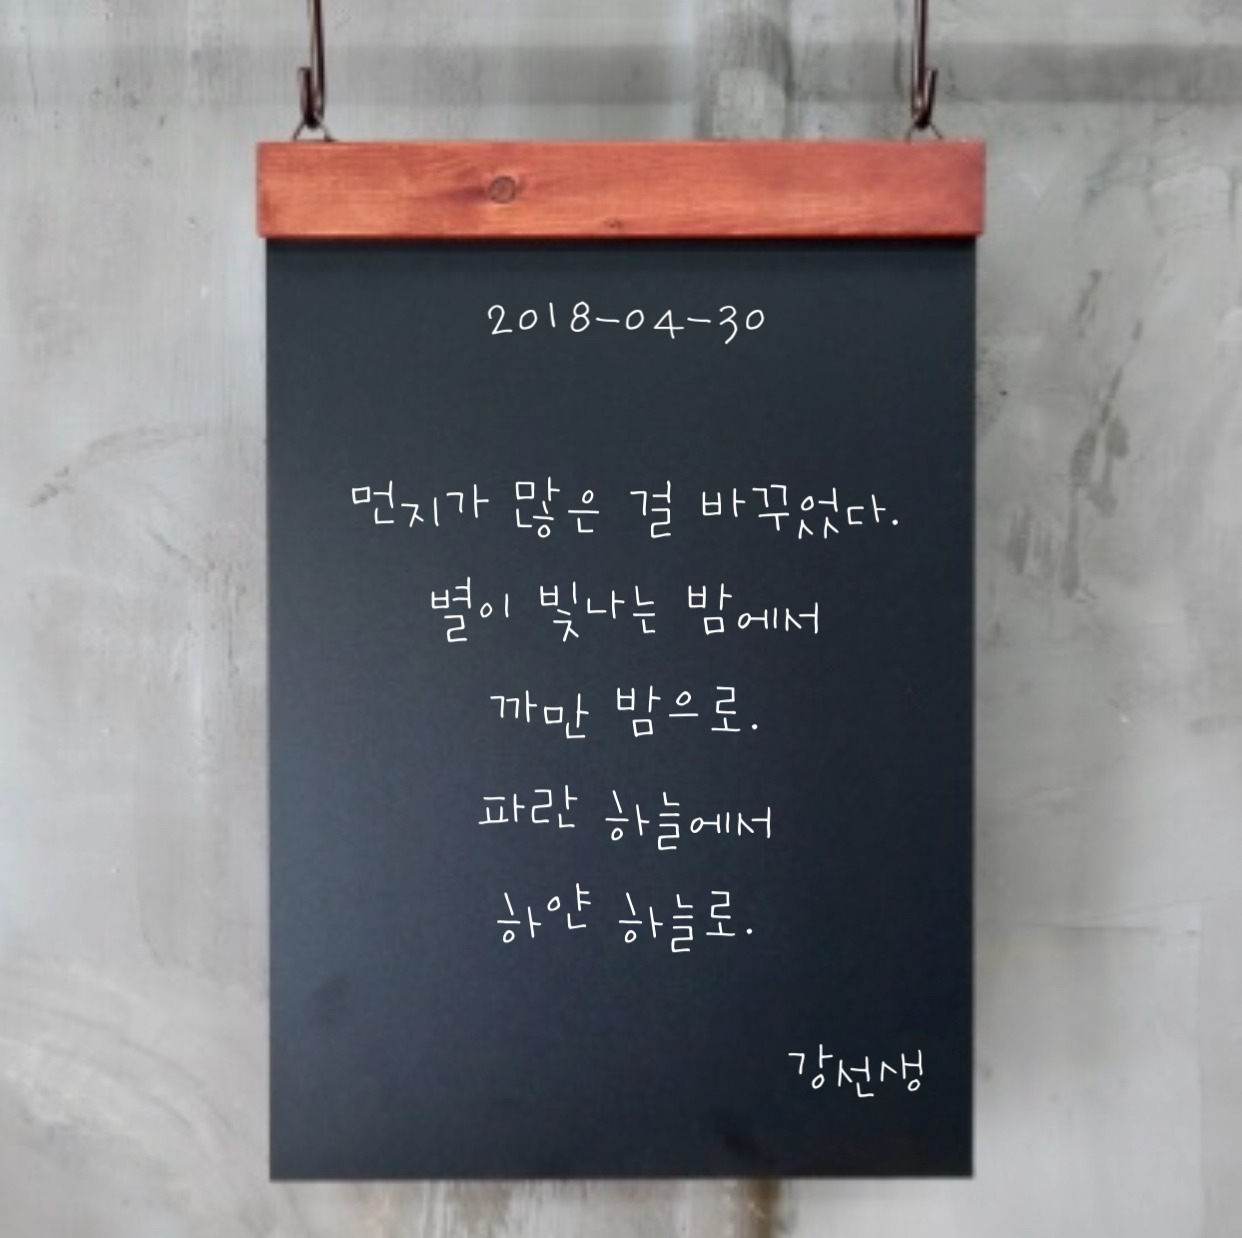 2018-04-30
먼지가 많은 걸 바꾸었다.
별이 빛나는 밤에서
까만 밤으로.
파란 하늘에서
하얀 하늘로.
강선생